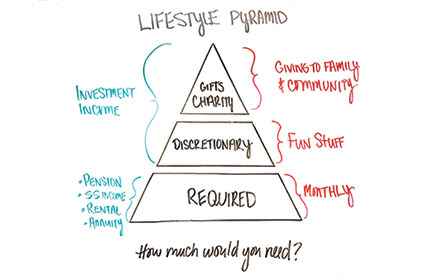 LIFESTYLE PYRAMID
INVESTMENT
INCOME
GIFTS
CHARITY
GIVING TO FAMILY
& COMMUNITY
DISCRETIONARY
FUN STUFF
• PENSION
• SS INCOME
• RENTAL
• ANNUITY
REQUIRED
MONTHLY
How much would you need?